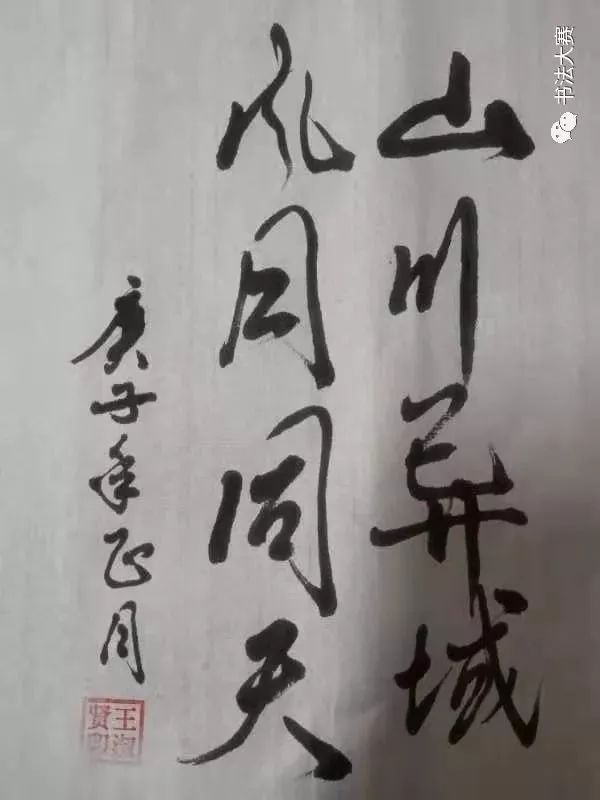 山川异域
风月同天
庚子年正月
王淑贤印
书法大赛